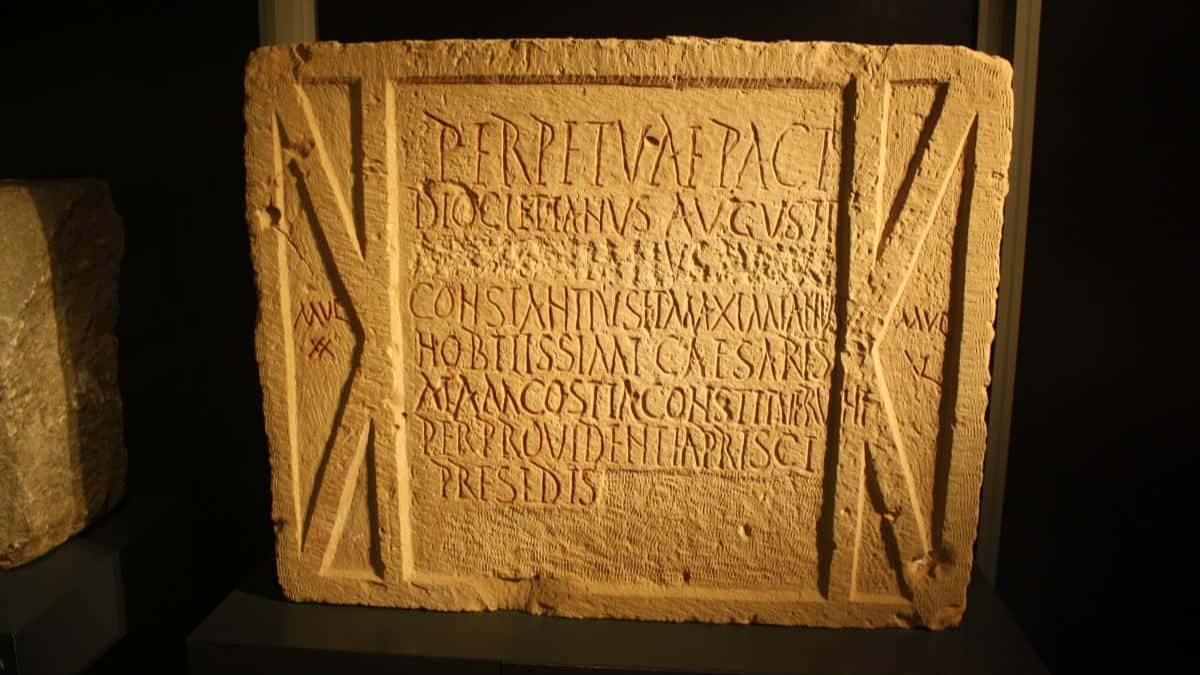 PERPETVAE PACI
DIOCLETIANVS AVGVSTI
CONSTANTIVSETMAXIMIANVS
NOBILISSIMI CAESARIS
VIAMCOSTIACONSTITVERVNT
PERPROVIDENTIAPRISCI
PRESEDIS
MVL
XX
MVC